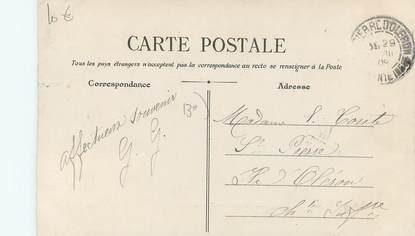 10 €
CARTE POSTALE
Tous les pays étrangers n'acceptent pas la correspondance au recto se renseigner à la Poste
Correspondance
Adresse
affectueux souvenir
G. G.
Madame
St Pierre
Ile d'Oléron
Ch<sup>te</sup> Inf<sup>re</sup>